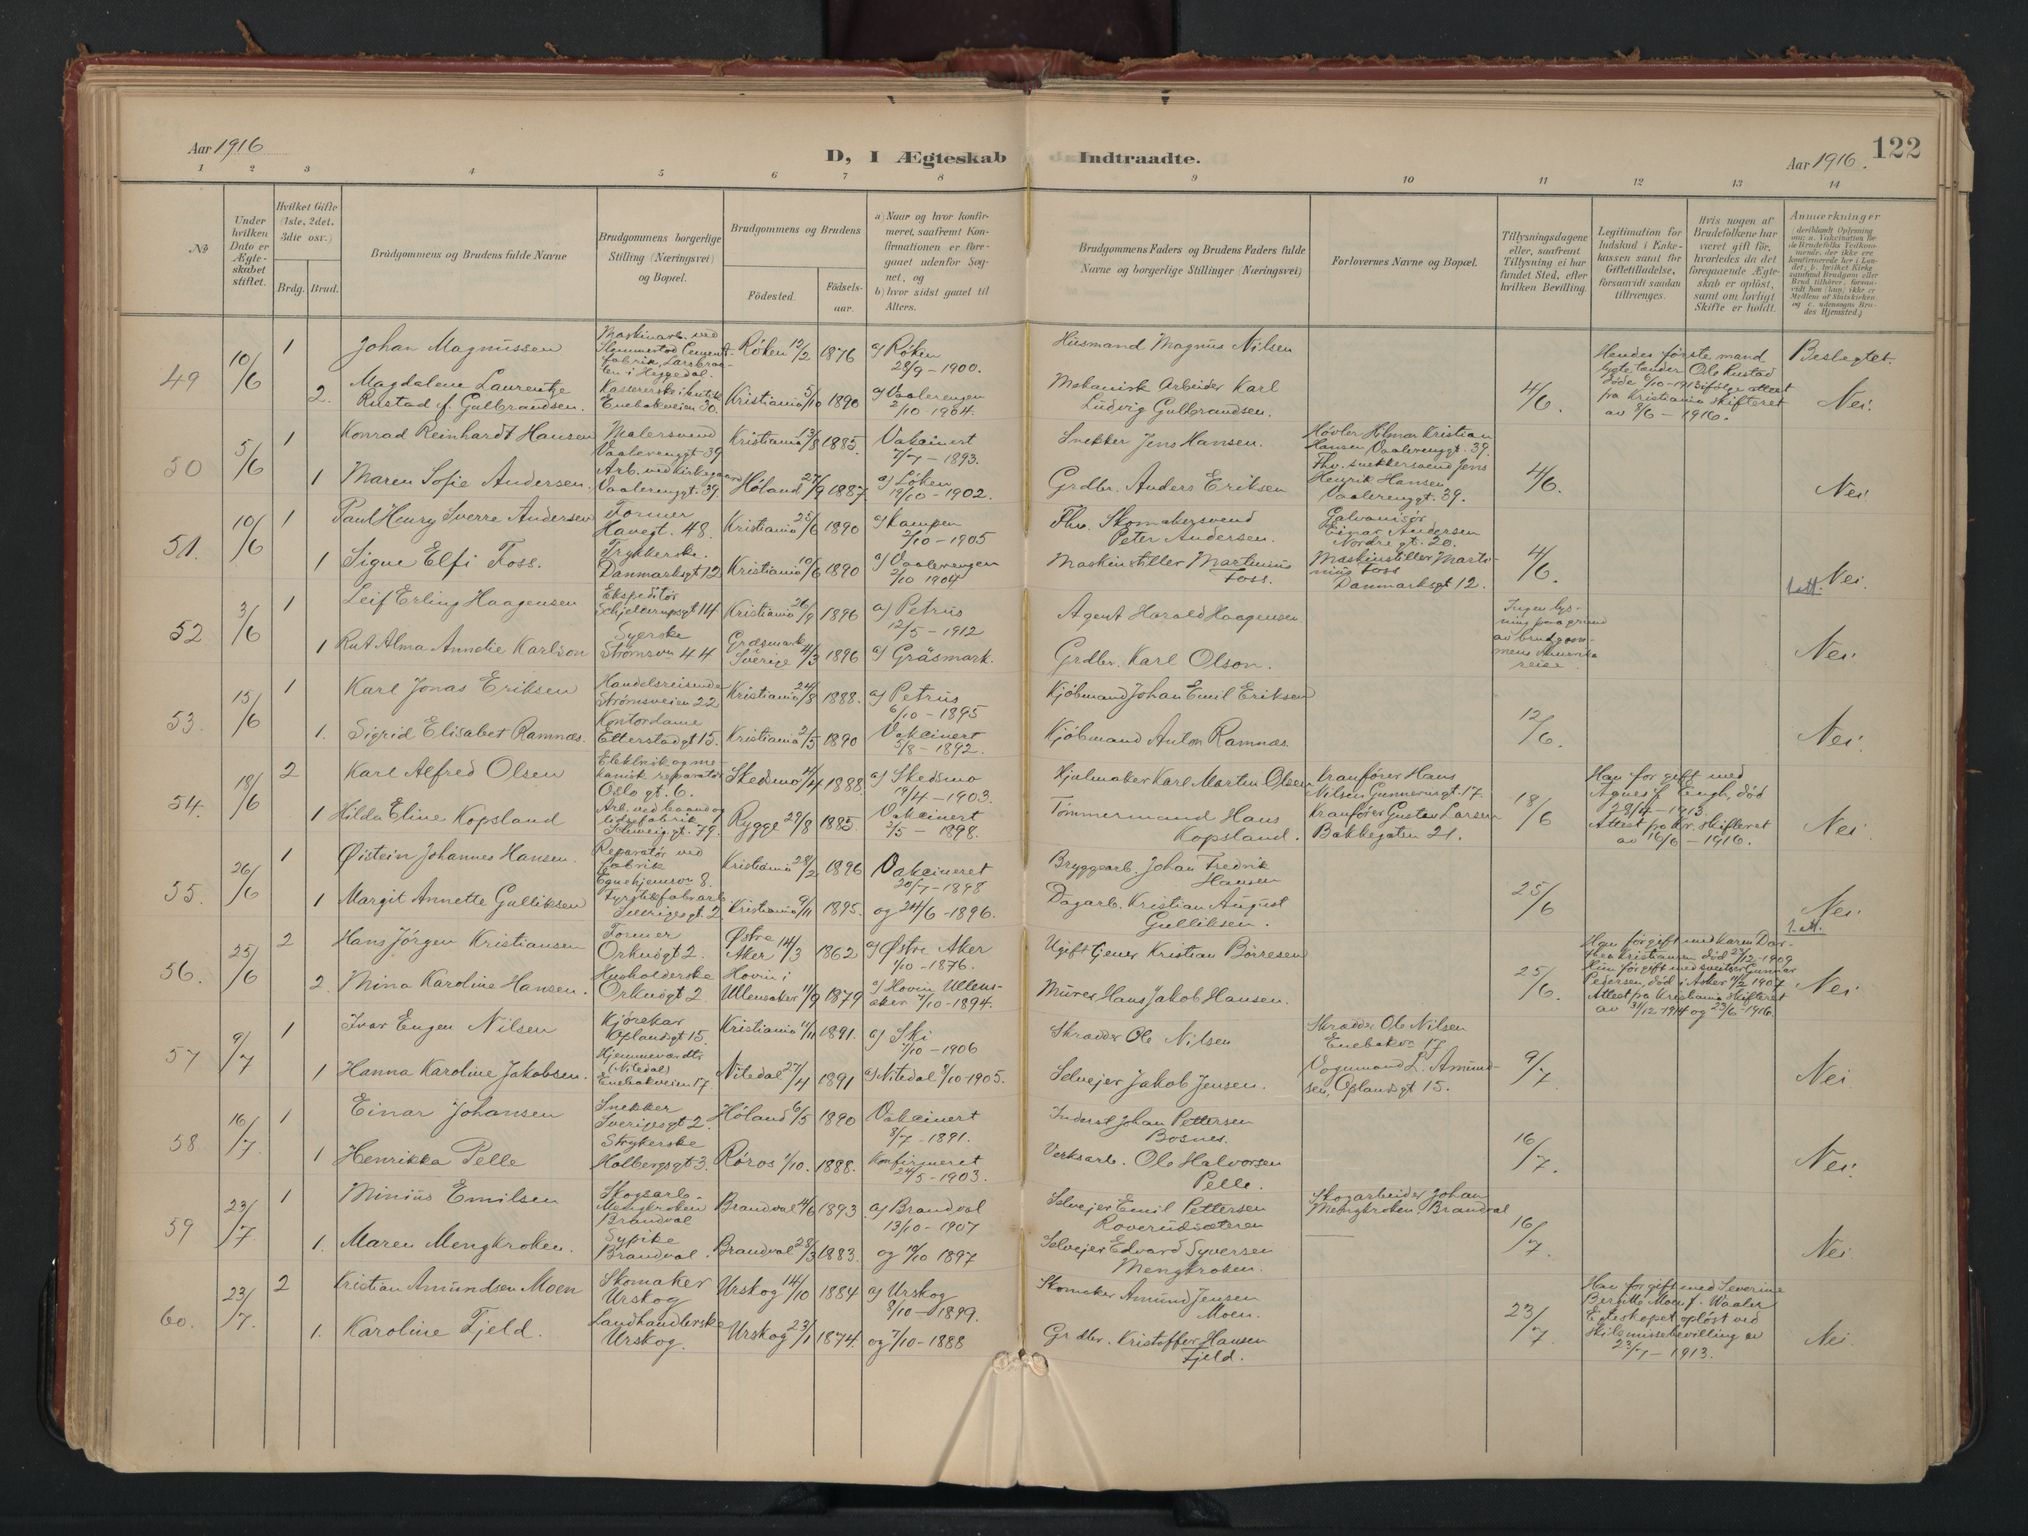 Aar 1916
D, I Ægteskab Indtraadte.
Aar 1916.
122
1 2 3 4 5 6 7 8 9 10 11 12 13 14
№
Under hvilken Dato er Ægteskabet stiftet.
Hvilket Gifte (1ste, 2det, 3die osv.)
Brdg. Brud.
Brudgommens og Brudens fulde Navne
Brudgommens borgerlige Stilling (Næringsvei) og Bopæl.
Brudgommens og Brudens
Fødested.
Fødselsaar.
a) Naar og hvor konfirmeret, saafremt Konfirmationen er foregaaet udenfor Sognet, og
b) hvor sidst gaaet til Alters.
Brudgommens Faders og Brudens Faders fulde Navne og borgerlige Stillinger (Næringsvei)
Forlovernes Navne og Bopæl.
Tillysningsdagene eller, saafremt Tillysning ei har fundet Sted, efter hvilken Bevilling.
Legitimation for Indskud i Enkekassen samt for Giftetilladelse, forsaavidt saadan tiltrænges.
Hvis nogen af Brudefolkene har været gift før, hvorledes da det foregaaende Ægteskab er opløst, samt om lovligt Skifte er holdt.
Anmærkninger
49 10/6 1 Johan Magnussen
Maskinarb. ved Slemmestad Cementfabrik, i Heggedal.
Røken 12/2 1876
a) Røken 28/9 - 1900.
Husmand Magnus Nilsen
Hendes første mand Ole Rustad døde 6/10 - 1913 ifølge attest fra Kristiania skifteret av 8/6 - 1916.
Beslegtet
2. Magdalene Laurentze Rustad f. Gulbrandsen.
Enebakveien 30.
Kristiania 5/10 1890
a) Vaalerengen 2/10 - 1904.
Mekanisk Arbeider Karl Ludvig Gulbrandsen.
4/6. Nei.
50 5/6 1 Konrad Reinhardt Hansen
Malersvend Vaalerenggt 39
Kristiania 13/8 1885.
Vakcinert 7/7 - 1893.
Snekker Jens Hansen.
Høvler Hilmar Kristian Hansen Vaalerenggt. 39.
1 Maren Sofie Andersen.
Arb. ved kirkegaard Vaalerenggt. 39.
Høland 27/9 1887.
a) Løken 19/10 - 1902.
Grdbr. Anders Eriksen
Fhv. snekkersvend Jens Henrik Hansen Vaalerenggt. 39.
4/6. Nei.
51. 10/6 1 Paul Henry Sverre Andersen
Former Havegt. 48.
Kristiania 25/6 1890
a) Kampen 2/10 - 1905
Fhv. Skomakersvend Peter Andersen.
Galvanisør Einar Andersen Nordre gt. 20.
1 Signe Elfi Foss.
Trykkerske. Danmarksgt 12
Kristiania 10/6 1890
a) Vaalerengen 2/10 1904
Maskinstiller Martinius Foss.
Maskinstiller Martinius Foss Danmarksgt 12.
4/6. Nei
52 3/6 1 Leif Erling Haagensen
Ekspeditør Schjellerupsgt 14
Kristiania 26/9 1896
a) Petrus 12/5 - 1912
Agent Harald Haagensen
Ingen lysning paa grund av brudgommens Amerika reise.
1. att.
1 Rut Alma Anndie Karlson
Syerske Strømsvn 44
Græsmark Sverige 4/3 1896
a) Gräsmark.
Grdbr. Karl Olson.
Nei.
53. 15/6 1 Karl Jonas Eriksen
Handelsreisende Strømsveien 22
Kristiania 24/8 1888.
a) Petrus 6/10 - 1895
Kjøbmand Johan Emil Eriksen
1. Sigrid Elisabet Ramnæs.
Kontordame Etterstadgt 15.
Kristiania 2/5 1890
Vakcinert 3/8 - 1892.
Kjøbmand Anton Ramnæs.
12/6. Nei.
54. 18/6 2 Karl Alfred Olsen
Elektrisk og mekanisk reparatør Oslo gt. 6.
Skedsmo 4/4 1888.
a) Skedsmo 19/4 - 1903.
Hjulmaker Karl Martin Olsen
Kranfører Hans Nilsen Gunnerusgt. 17.
Han før gift med Agnes f. Engh, død 28/4 - 1913. Attest fra Kr. skifteret av 16/6 - 1916.
1 Hilda Eline Kopsland
Solveiggt. 79.
Rygge 29/8 1885.
Vakcinert 2/5 - 1898.
Tømmermand Hans Kopsland.
Kranfører Gustav Larsen Bakkegaten 21.
18/6 Nei.
55. 26/6 1 Øistein Johannes Hansen.
Reparatør ved fabrik Egnehjemsvn 8.
Kristiania 28/2 1896
Vakcineret 20/7 - 1898
Bryggearb. Johan Fredrik Hansen
1 Margit Annette Gulliksen
Fyrstikfabvarb. Sverigesgt. 2
Kristiania 9/11 1895.
og 24/6 - 1896.
Dagarb. Kristian August Gulliksen.
25/6 Nei.
56. 25/6 2 Hans Jørgen Kristiansen
Former Orknøgt 2.
Østre Aker 14/3 1862
a) Østre Aker 1/10 - 1876.
Ugift tjener Kristian Børresen
Han før gift med Karen Dorthea Kristiansen død 27/12 - 1909
1. att.
2. Mina Karoline Hansen.
Husholderske Orknøgt 2
Hovin i Ullensaker 11/9 1879
a) Hovin Ullensaker 7/10 - 1894.
Murer Hans Jakob Hansen.
Hun før gift med sveitser Gunnar Pedersen, død i Asker 11/2 1907 Attest fra Kristiania skifteret av 31/12 1914 og 23/6 - 1916.
25/6. Nei
57 9/7 1 Ivar Eugen Nilsen
Kjørekar Oplandsgt 15.
Kristiania 11/11 1891.
a) Ski 7/10 - 1906
Skrædder Ole Nilsen
Skrædder Ole Nilsen Enebakvn 17
1 Hanna Karoline Jakobsen.
Hjemmeværdtr. (Nitedal) Enebakveien 17
Nitedal 27/4 1891
a) Nitedal 8/10 - 1905.
Selveier Jakob Jensen.
Vognmand L. Amundsen, Oplandsgt 15.
9/7. Nei
58 16/7 1 Einar Johansen
Snekker Sverigesgt 2.
Høland 6/5 1890
Vakcinert 8/7 - 1891.
Inderst Johan Pettersen Bosnes.
1 Henrikka Pelle
Strykerske Holbergsgt 3.
Røros 1/10. 1888.
Konfirmeret 24/5 - 1903.
Verksarb. Ole Halvorsen Pelle.
16/7. Nei.
59 23/7 1 Minius Emilsen
Skogsarb. Mengkroken Brandval
Brandval 14/6 1893
a) Brandval 13/10 - 1907
Selveier Emil Pettersen Roverudsæteren
Skogarbeider Johan Mengkroken, Brandval
1. Maren Mengkroken.
Sypike Brandval.
Brandval 28/3 1883.
og 10/10 1897
Selveier Edvard Syversen Mengkroken.
16/7. Nei
60. 23/7. 2 Kristian Amundsen Moen
Skomaker Urskog
Urskog 14/10 1884
a) Urskog 8/10 - 1899.
Skomaker Amund Jensen Moen.
Han før gift med Severine Bergitte Moen f. Waaler Egteskapet opløst ved skilsmissebevilling av 23/7 - 1913.
1. Karoline Fjeld.
Landhandlerske Urskog.
Urskog 23/1 1874.
og 7/10 - 1888
Grdbr. Kristoffer Hansen Fjeld.
23/7 Nei